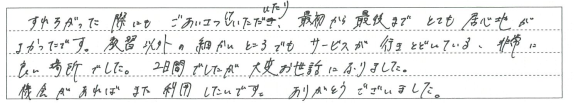 すれちがった際にも ごあいさついただき、最初から最後まで とても居心地が
よかったです。教習以外の細かいところでも サービスが行きとどいている、非常に
良い場所でした。2日間でしたが大変お世話になりました。
機会があればまた利用したいです。ありがとうございました。